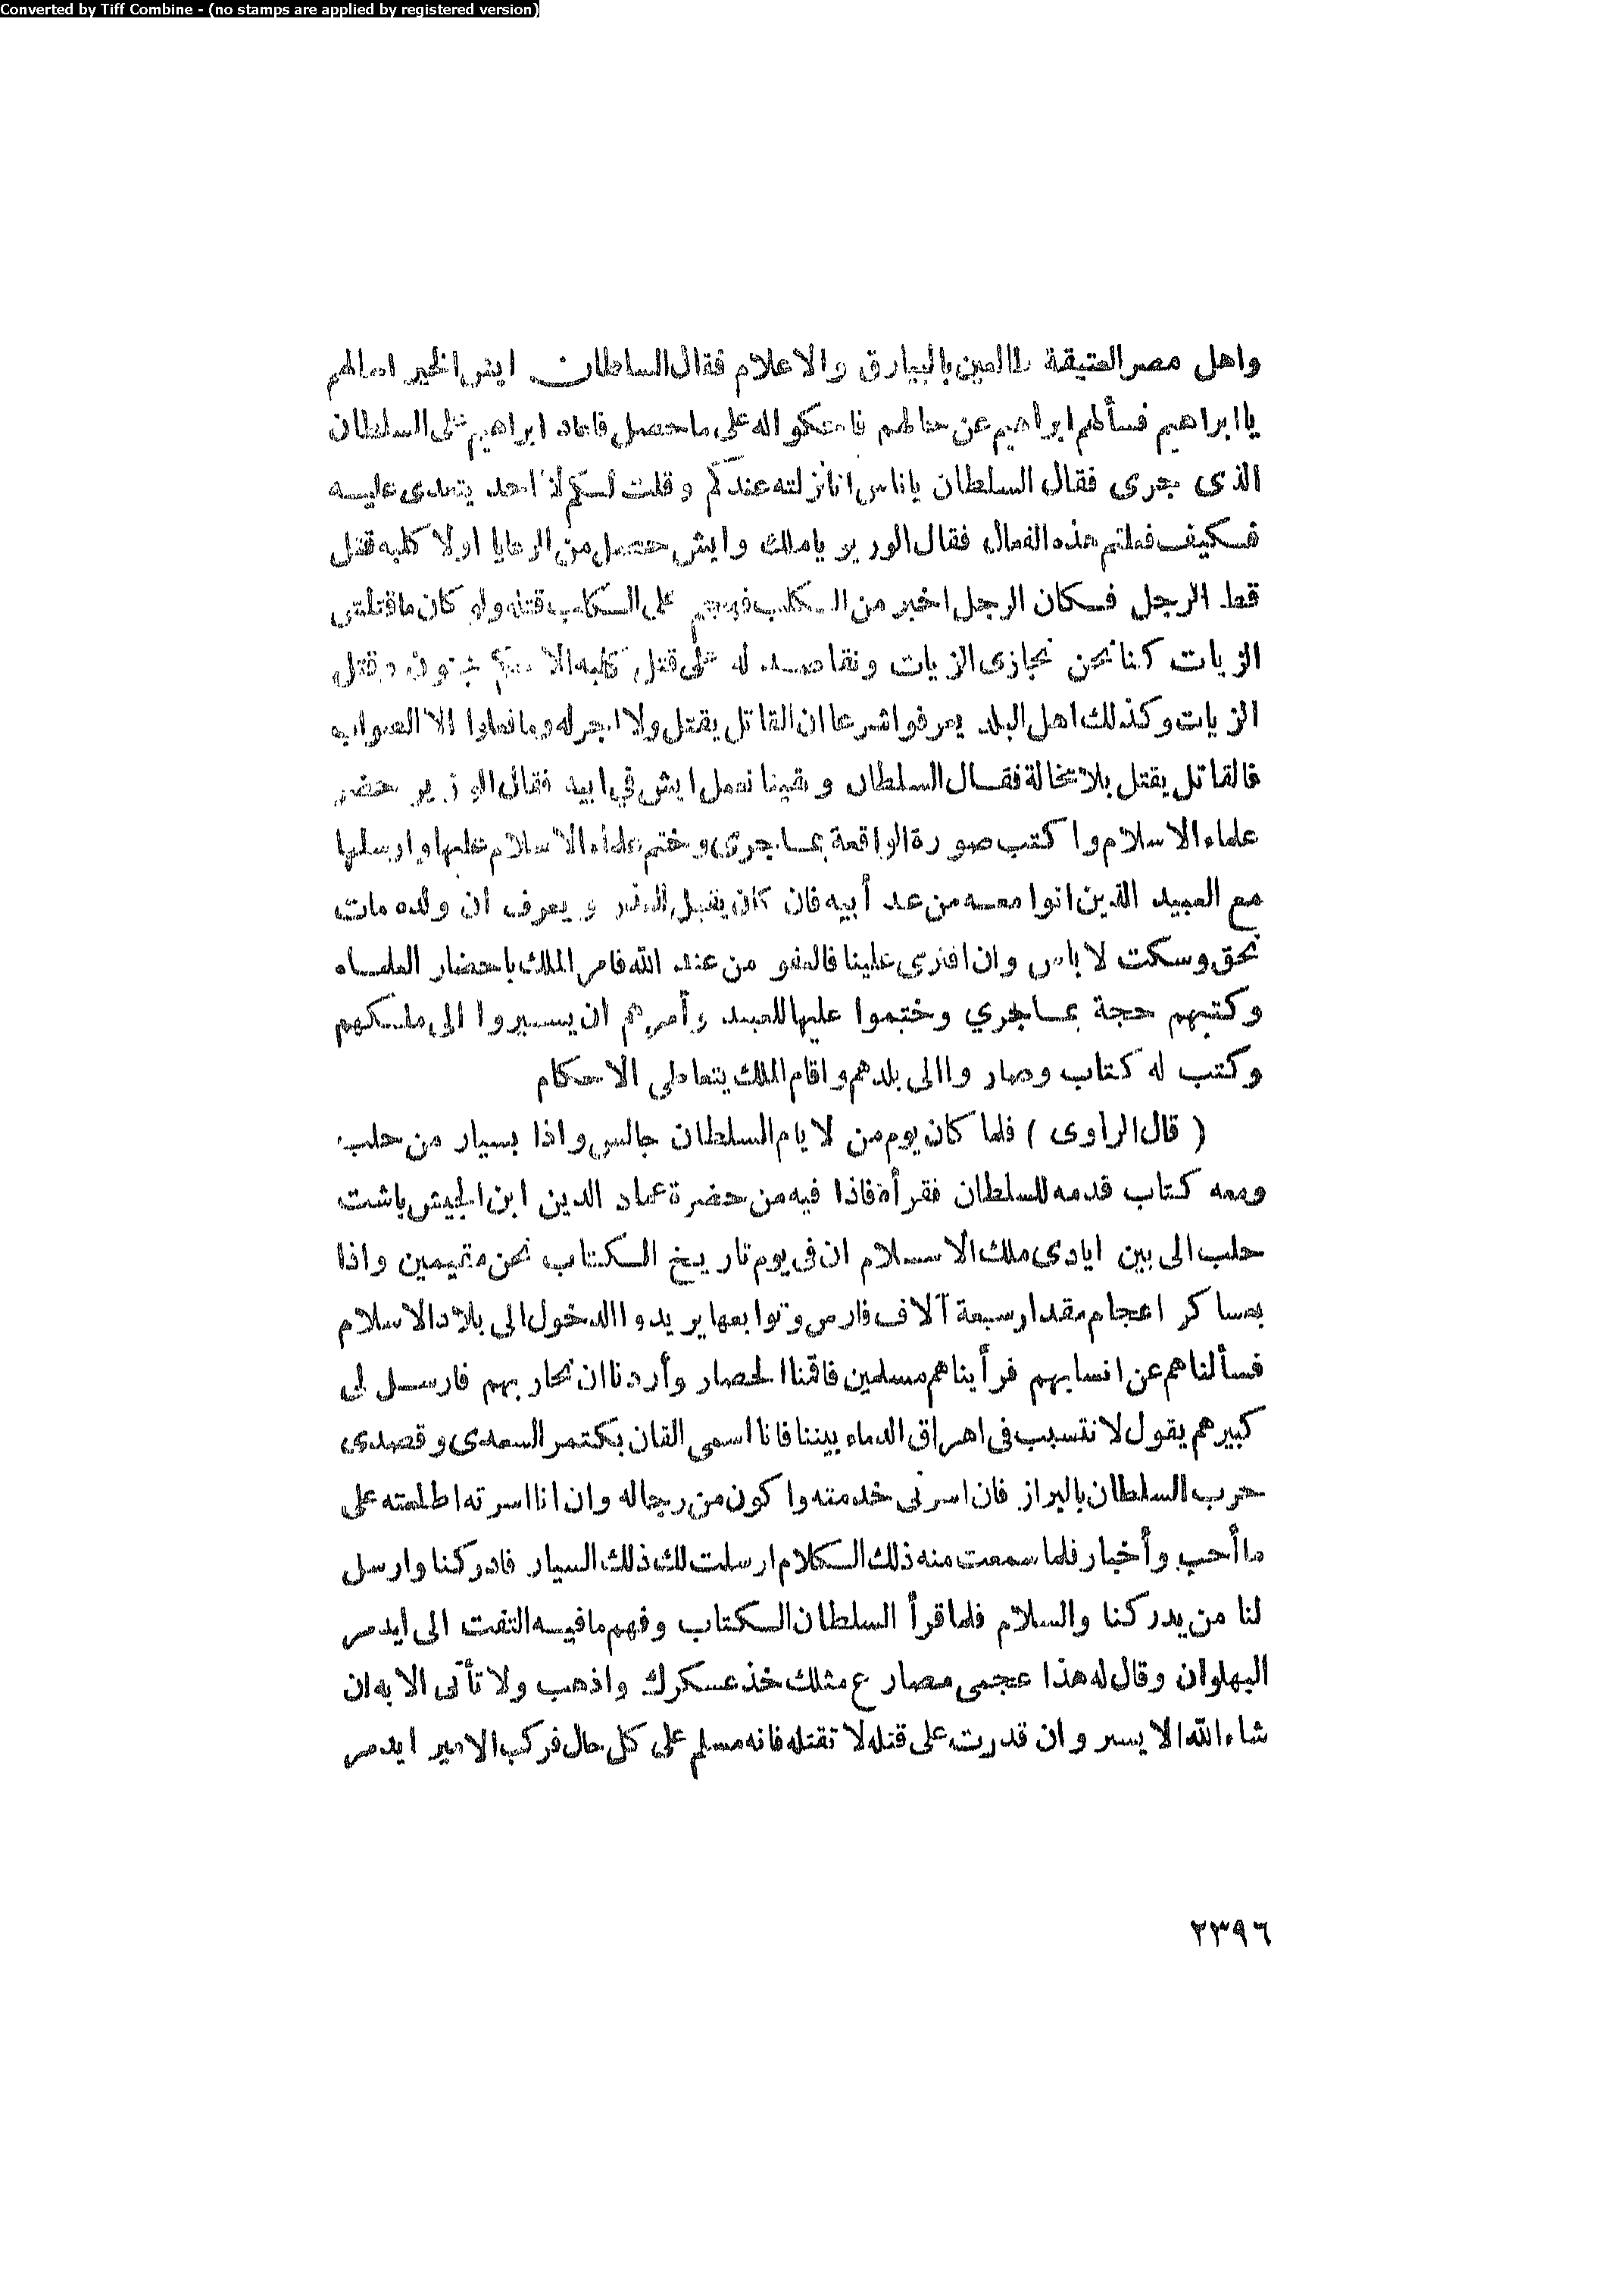 Converted by Tiff Combine - (no stamps are applied by registered version)
واهل مصر العتيقة طالعين بالبيارق والاعلام فقال السلطان ايش الخبر اسالهم
يا ابراهيم فسألهم ابراهيم عن حالهم فاحتكوا له على ما حصل فاعاد ابراهيم على السلطان
الذى جرى فقال السلطان يا ناس انا نزلته عندكم وقلت لكم لا احد يتعدى عليه
فكيف فعلتم هذه الفعال فقال الوزير يا ملك وايش حصل من الرعايا اولا كلبه قتل
قط الرجل فكان الرجل اخبر من الكلب فهجم على الكلب قتله ولو كان ما قتلتش
الزيات كنا نحن نجازى الزيات ونقاصصه له على قتل كلبه الا وقتل
الزيات وكذلك اهل البلد يعرفوا شرعا ان القاتل يقتل ولا اجر له وما فعلوا الا الصواب
فالقاتل يقتل بلا محالة فقال السلطان وبقينا نعمل ايش في ابيه فقال الوزير حضر
علماء الاسلام واكتب صورة الواقعة بما جرى وختم علماء الاسلام عليها وارسلها
مع العبيد الذين اتوا معه من عد أبيه فان كان يقبل العذر ويعرف ان ولده مات
بحق وسكت لا باس وان افترى علينا فالعفو من عند الله فامر الملك باحضار العلماء
وكتبهم حجة بما جري وختموا عليها للعبيد وأمرهم ان يسيروا الى ملكهم
وكتب له كتاب وصاروا الى بلدهم واقام الملك يتعاطى الاحكام
( قال الراوى ) فلما كان يوم من لايام السلطان جالس واذا بسيار من حلب
ومعه كتاب قدمه للسلطان فقرأه فاذا فيه من حضرة عماد الدين ابن الجيش باشت
حلب الى بين ايادى ملك الاسلام ان فى يوم تاريخ الكتاب نحن مقيمين واذا
بعساكر اعجام مقدار سبعة آلاف فارس وتوابعها يريدوا الدخول الى بلاد الاسلام
فسألناهم عن انسابهم فرأيناهم مسلمين فاقمنا الحصار وأردنا ان نحاربهم فارسل لى
كبيرهم يقول لا نتسبب فى اهراق الدماء بيننا فانا اسمى القان بكتمر السعدى وقصدى
حرب السلطان بالبراز فان اسرنى خدمته واكون من رجاله وان انا اسرته اطلعته على
ما أحب وأخبار فلما سمعت منه ذلك الكلام ارسلت لك ذلك السيار فادركنا وارسل
لنا من يدركنا والسلام فلما قرأ السلطان الكتاب وفهم ما فيه التفت الى أيدمر
البهلوان وقال له هذا عجمى مصارع مثلك خذ عسكرك واذهب ولا تأتى الا به ان
شاء الله الا يسر وان قدرت على قتله لا تقتله فانه مسلم على كل حال فركب الامير ايدمر
٢٣٩٦